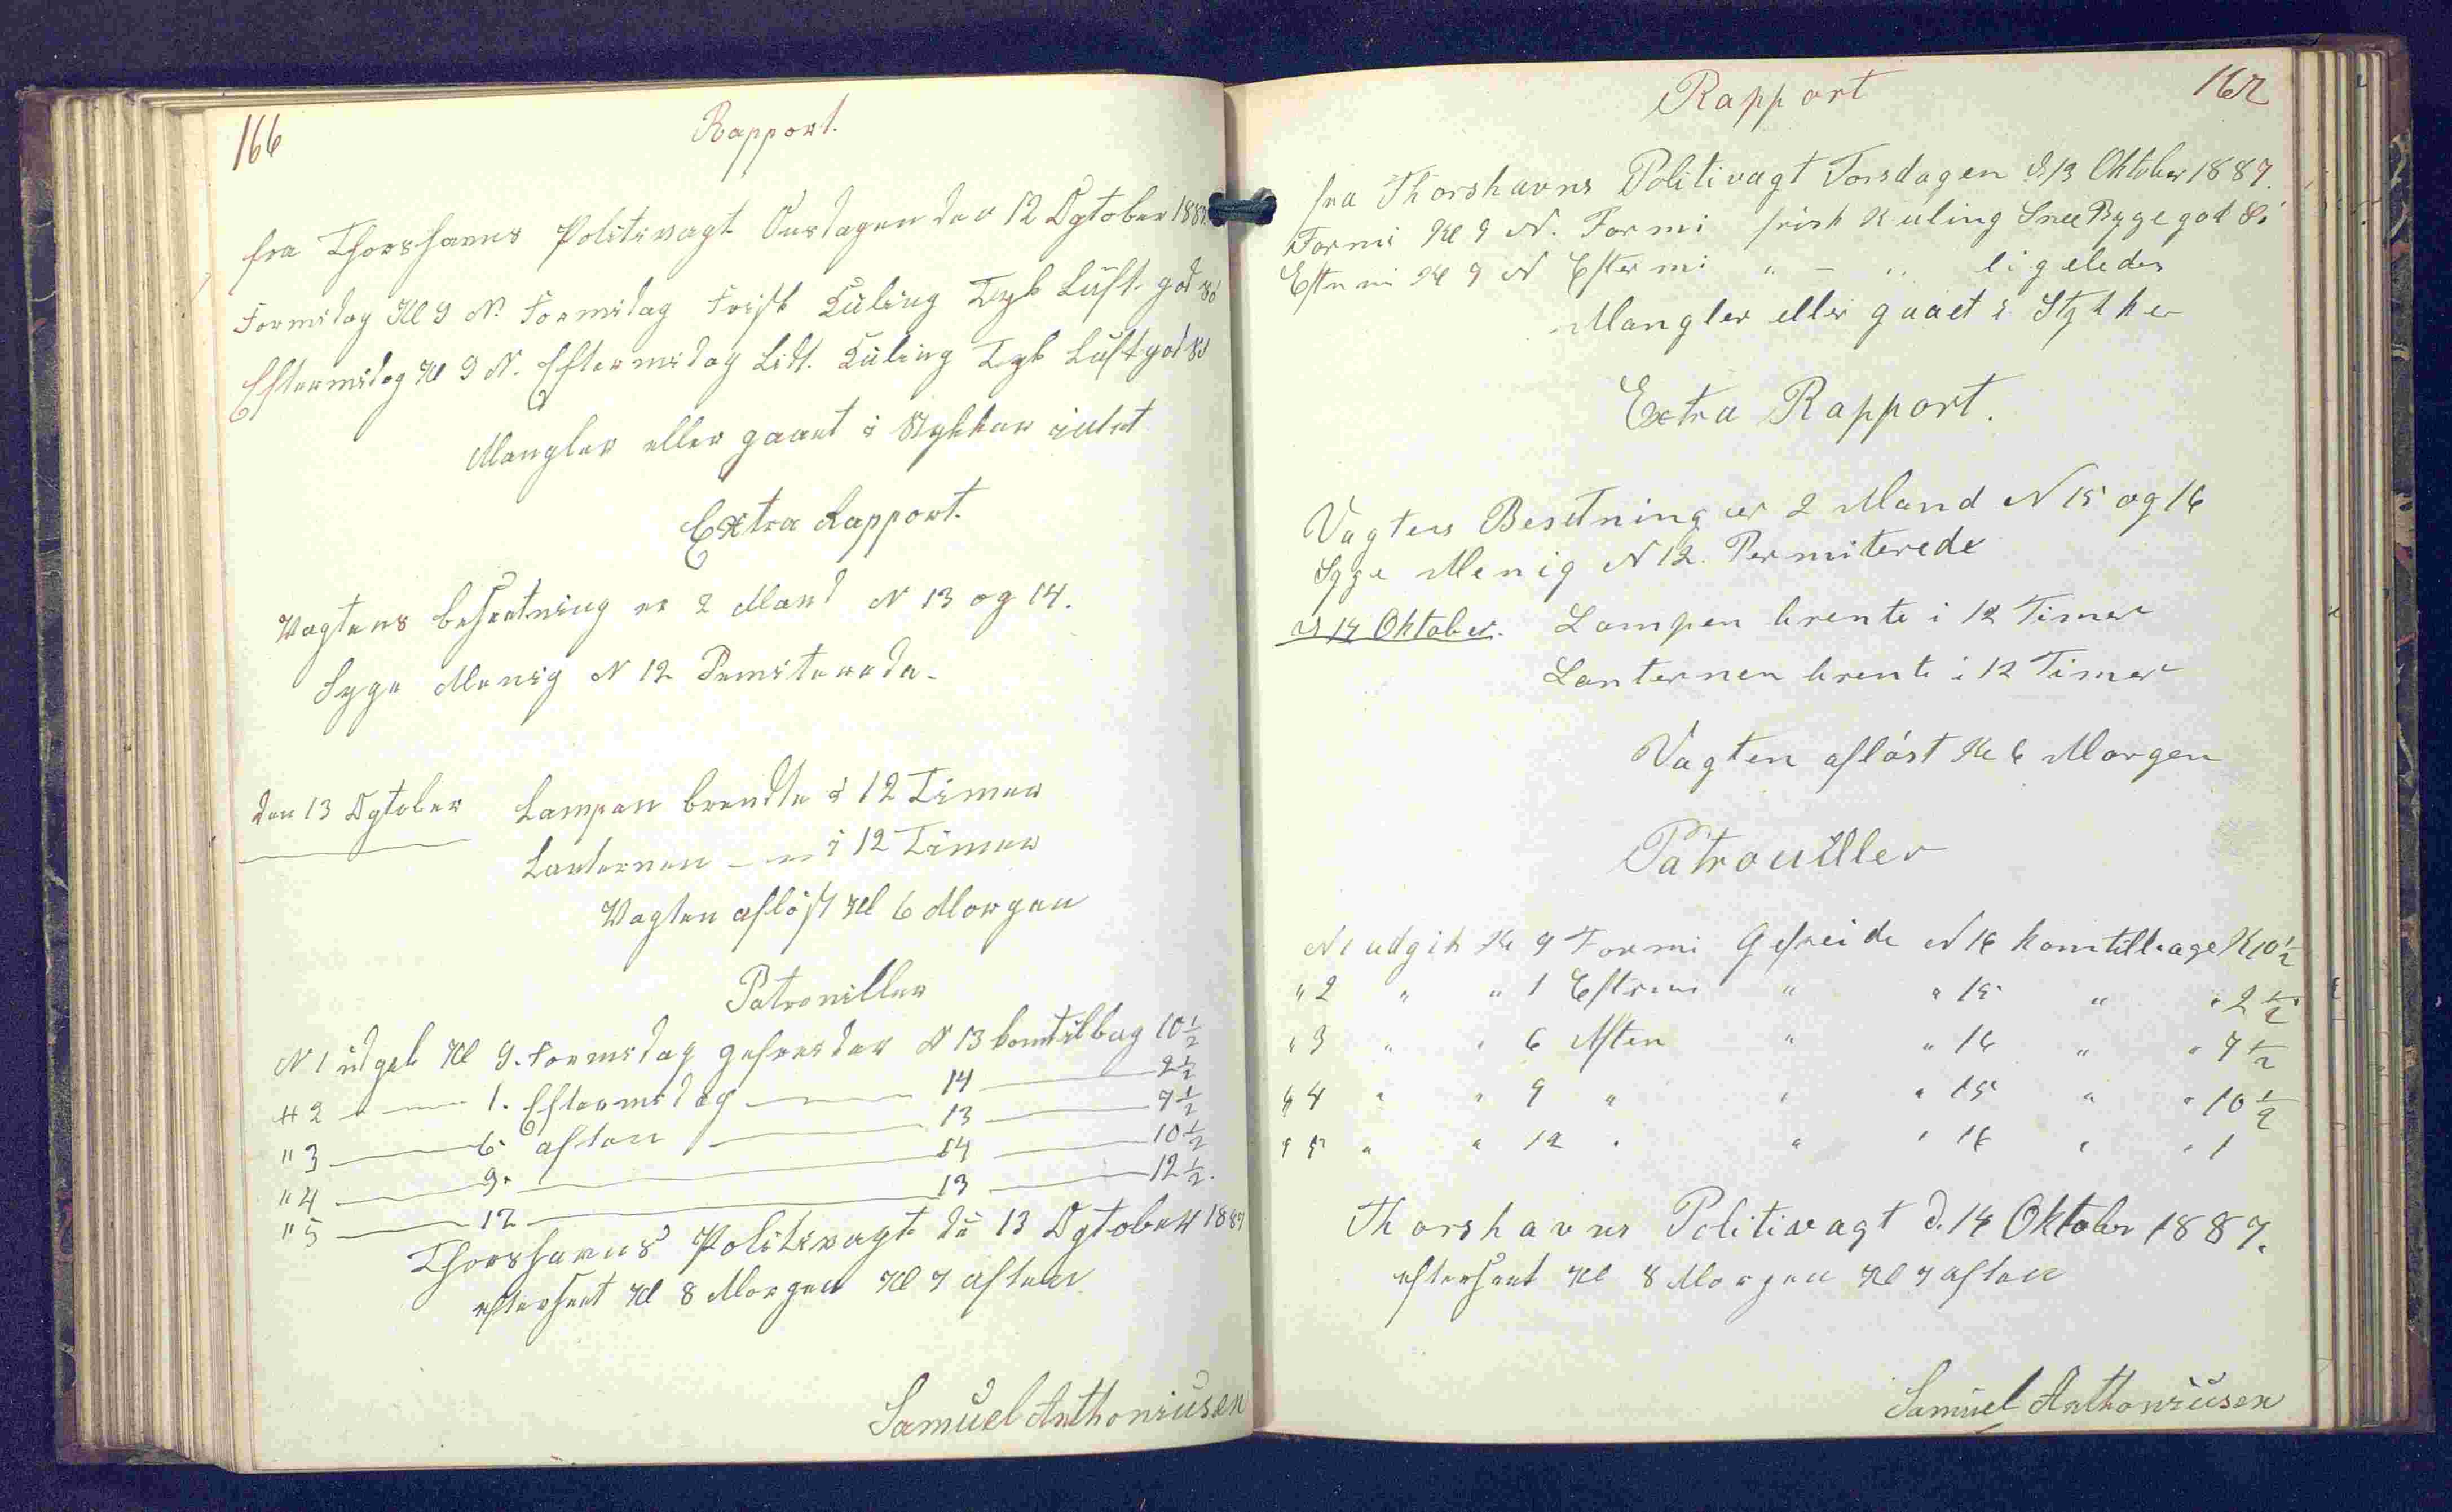 166
Rapport.
fra Thorshavns Politivagt Onsdagen den 12 Ogtober 1887
Formidag Kl 9 N. Formidag Frisk Kuling Tyk Luft god Si
Eftermidag Kl 9 N. Eftermidag Lidt. Kuling Tyk Luft god Si
Mangler eller gaaet i Stykker intet
Extra Rapport.
Vagtens besætning er 2 Mand N 13 og 14.
Syge Menig N 12 Pemiterede.
den 13 Ogtober Lampen brendte i 12 Timer
Lanternen — „ — i 12 Timer
Vagten afløst Kl 6 Morgen
Patrouiller
N 1 udgik Kl 9. Formidag gefreider N 13 komtilbag 10 1/2
„ 2 — „ — 1. Eftermidag — 14 — 2 1/2
„ 3 — 6. aften — 13 — 7 1/2
„ 4 — 9. — 14 — 10 1/2
„ 5 — 12 — 13 — 12 1/2.
Thorshavns Politivagt dn 13 Ogtober 1887
efterseet Kl 8 Morgen Kl 7 aften
Samuel Anthoniusen
167
Rapport
fra Thorshavns Politivagt Torsdagen d 13 Oktober 1887.
Formi Kl 9 N. Formi frisk Kuling Snee Byge god Si
Eftermi Kl 9 N Eftermi „ — „ ligeledes
Mangler eller gaaet i Stykker
Extra Rapport.
Vagtens Besetning er 2 Mand N 15 og 16
Syge Menig N 12. Permiterede
d 14 Oktober. Lampen brente i 12 Timer
Lanternen brente i 12 Timer
Vagten afløst Kl 6 Morgen
Patrouiller
N 1 udgik Kl 9 Formi Gefreide N 16 kom tilbage Kl 10 1/2
„ 2 „ „ 1 Eftermi „ „ 15 „ „ 2 1/2
„ 3 „ „ 6 Aften „ „ 16 „ „ 7 1/2
„ 4 „ „ 9 „ „ „ 15 „ „ 10 1/2
„ 5 „ „ 12 „ „ „ 16 „ „ 1
Thorshavns Politivagt d. 14 Oktober 1887.
efterseet Kl 8 Morgen Kl 7 aften
Samuel Anthoniusen